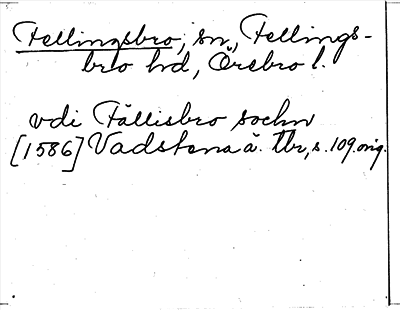 Fellingsbro, sn, Fellings-
bro hd, Örebro l.
vdi Fällisbro sochn
[1586] Vadstena ä. tbr, s. 109. orig.